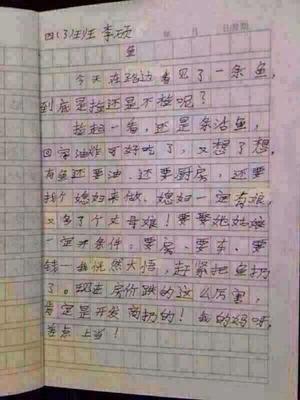 四(3)班 李硕
年 月 日星期
鱼
今天在路边看见了一条鱼,
到底是捡还是不捡呢?
捡起一看,还是条活鱼,
回家油炸可好吃了,又想了想,
有鱼还要油,还要厨房,还要
找个媳妇来做,媳妇一定有娘,
又多了个丈母娘!要娶她姑娘
一定开条件:要房、要车、要
钱…我恍然大悟,赶紧把鱼扔
了。现在房价跌的这么厉害,
肯定是开发商扔的!我的妈呀,
差点上当!